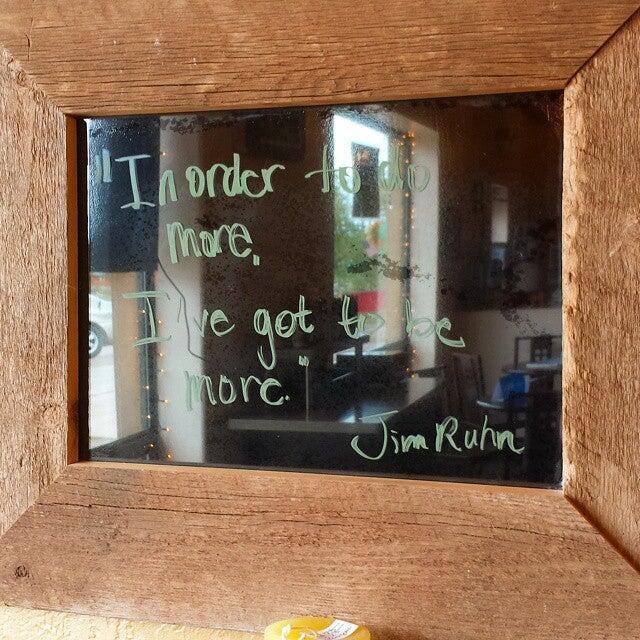 "In order to do
more,
I've got to be
more."
Jim Ruhn